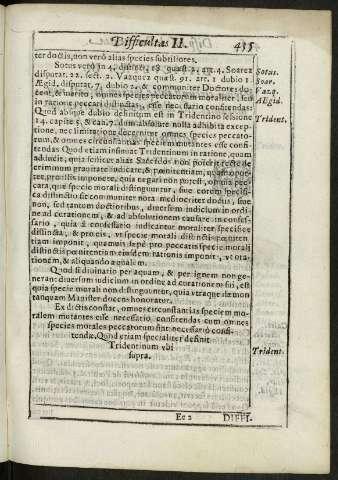 Difficultas II. 435
ter doctis, non verò alias species subtiliores.
Sotus verò in 4. distinct. 18. quæst. 2. art. 4. Soarez
disputat. 22. sect. 2. Vazquez quæst. 91. art. 1 dubio 1.
Ægid. disputat. 7. dubio 2. & communiter Doctores do-
cent, & meritò, omnes species peccatorum moraliter, seu
in ratione peccati distinctas, esse necessariò confitendas:
Quod absque dubio definitum est in Tridentino sessione
14. capite 5. & can. 7. dum absolute nulla adhibita excep-
tione, nec limitatione decernitur omnes species peccato-
rum, & omnes circumstantias speciem mutantes esse confi-
tendas Quod etiam insinuat Tridentinum in ratione, quam
adducit, quia scilicet alias Sacerdos non poterit recte de
criminum grauitate iudicare, & pœnitentiam, quam opor-
tet, pro illis imponere, quia negari non potest, quin
cata, quæ specie morali distinguuntur, siue eorum specifi-
ca distinctio sit communiter nota mediocriter doctis, siue
non, sed tantum doctioribus, diuersum iudicium in ordi-
ne ad curationem, & ad absolutionem causare in confes-
sario, quia à confessario iudicantur moraliter species
distinctæ, & pro eis, vt specie morali distinctis pœniten-
tiam imponit, quamuis sæpè pro peccatis specie morali
distinctis pœnitentiam eiusdem rationis imponit, vt ora-
tionem, & aliquando æqualem.
Quod si diuinatio per aquam, & per ignem non ge-
nerant diuersum iudicium in ordine ad curationem sui, est
quia specie morali non distinguuntur, quia vtraque dæmon
tanquam Magister docens honoratur.
Ex dictis constat, omnes circunstantias speciem mo-
ralem mutantes esse necessariò confitendas cum omnes
species morales peccatorum sint necessariò confi-
tendæ. Quod etiam specialiter definit
Tridentinum vbi
supra.
Ee 2 DIFFI-
Sotus.
Soar.
Vazq.
AEgid.
Trident.
Trident.